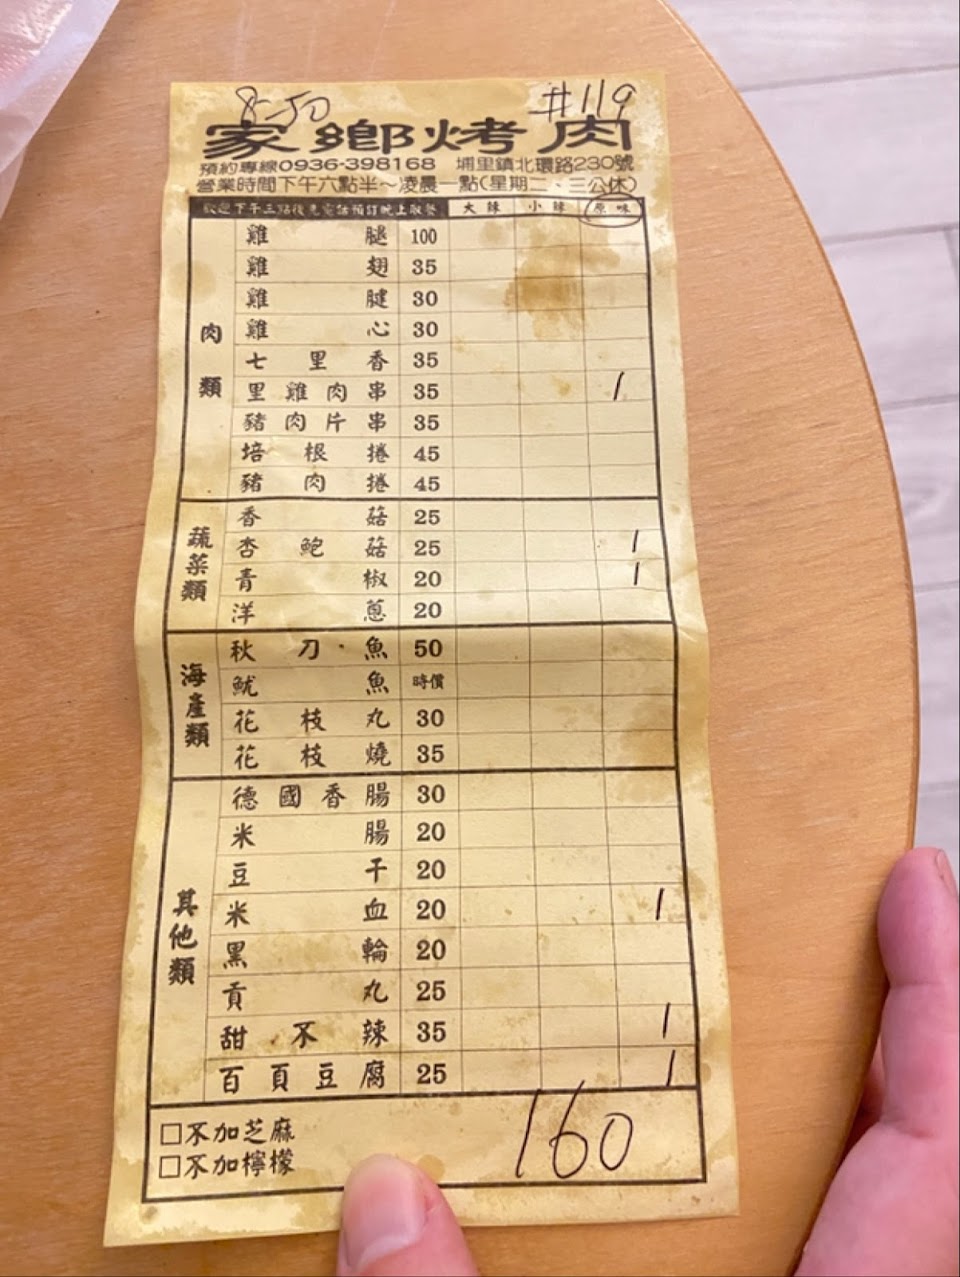 8-50 #119
家鄉烤肉
預約專線0936-398168 埔里鎮北環路230號
營業時間下午六點半～凌晨一點(星期二、三公休)
歡迎下午三點後先電話預訂晚上取餐 大辣 小辣 原味
肉類
雞腿 100
雞翅 35
雞腱 30
雞心 30
七里香 35
里雞肉串 35 1
豬肉片串 35
培根捲 45
豬肉捲 45
蔬菜類
香菇 25
杏鮑菇 25 1
青椒 20 1
洋蔥 20
海產類
秋刀魚 50
魷魚 時價
花枝丸 30
花枝燒 35
其他類
德國香腸 30
米腸 20
豆干 20
米血 20 1
黑輪 20
貢丸 25
甜不辣 35 1
百頁豆腐 25 1
□不加芝麻
□不加檸檬
160